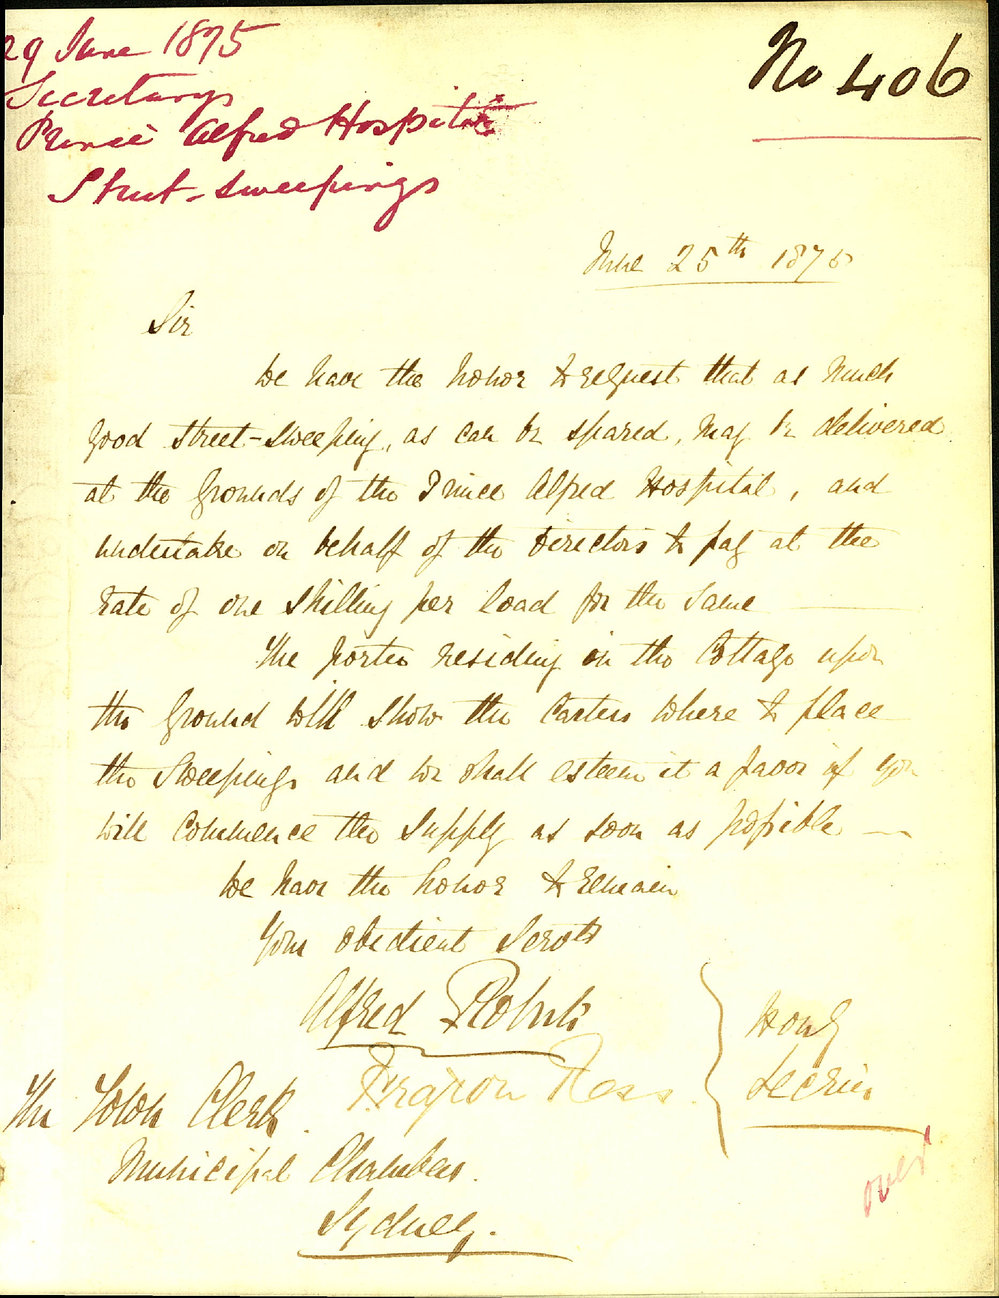 29 June 1875
Secretarys
Prince Alfred Hospital
Street-sweepings
No 406
June 25th 1875
Sir
We have the honor to request that as much
good street-sweeping, as can be spared, may be delivered
at the Grounds of the Prince Alfred Hospital, and
undertake on behalf of the Directors to pay at the
rate of one shilling per load for the same
The porter residing in the Cottage upon
the Ground will show the Carters where to place
the Sweepings and we shall esteem it a favor if you
will commence the supply as soon as possible
We have the honor to remain
Your obedient Servts
Alfred Roberts
Ness
Hony
Secries
The Town Clerk
Municipal Chambers.
Sydney.
over